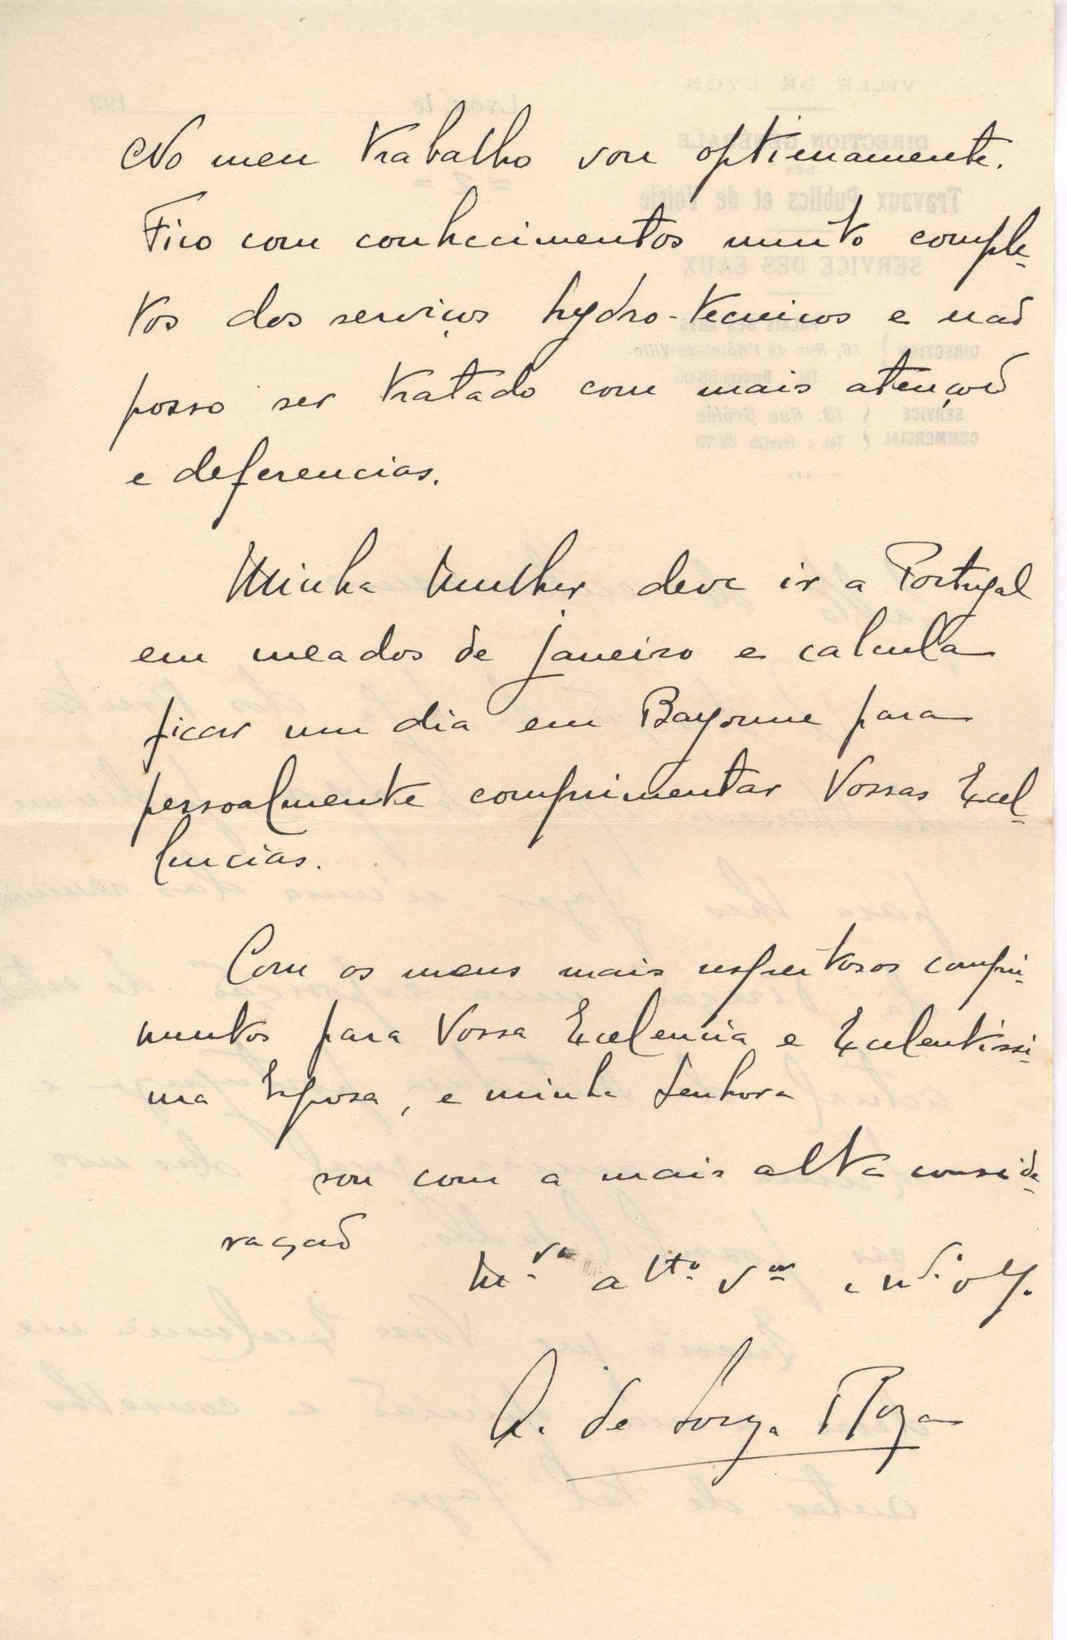 No meu trabalho vou optimamente.
Fico com conhecimentos muito comple-
tos dos serviços hydro-tecnicos e naõ
posso ser tratado com mais atençoẽ
e deferencias.
Minha Mulher deve ir a Portugal
em meados de janeiro e calcula
ficar um dia em Bayonne para
pessoalmente comprimentar Vossas Excel-
lencias.
Com os meus mais respeitosos compri-
mentos para Vossa Excelencia e Excelentissi-
ma Esposa, e minha Senhora
sou com a mais alta conside-
raçaõ
M.to at.to V.or e
A. de Souza